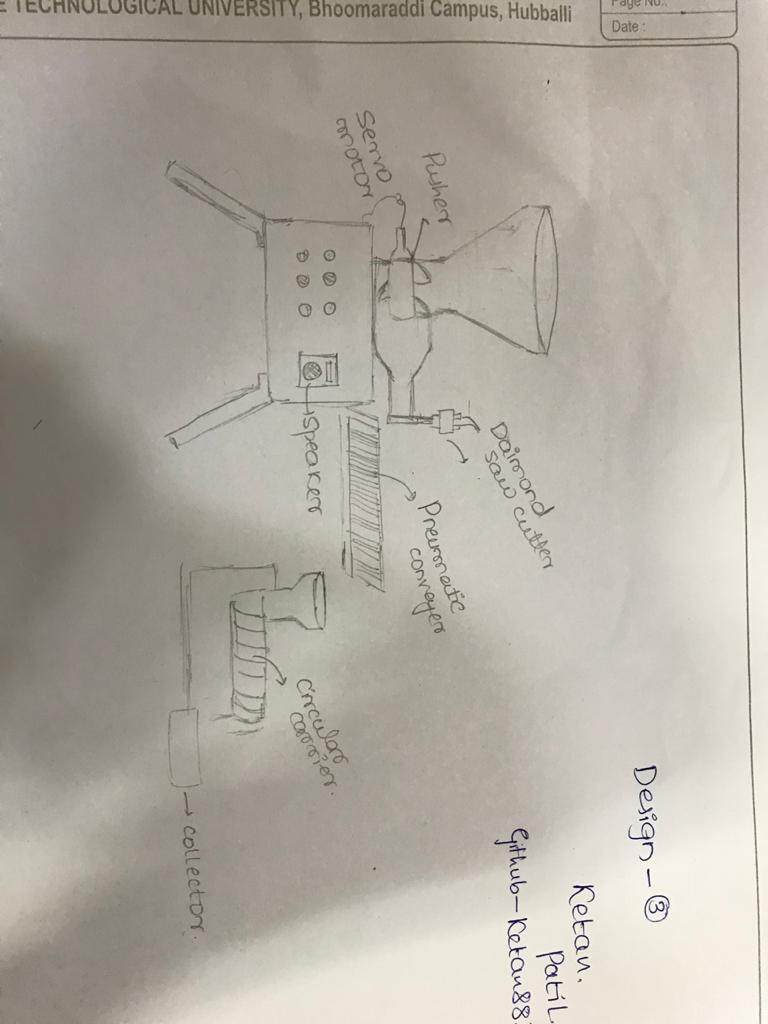 Page No.:
Date :
TECHNOLOGICAL UNIVERSITY, Bhoomaraddi Campus, Hubballi
Design - ③
Ketan.
Patil.
Github-Ketan88
Daimond
saw cutter
Pusher
Pneumatic
conveyer
Servo
motor
speaker
circular
carrier.
collector.